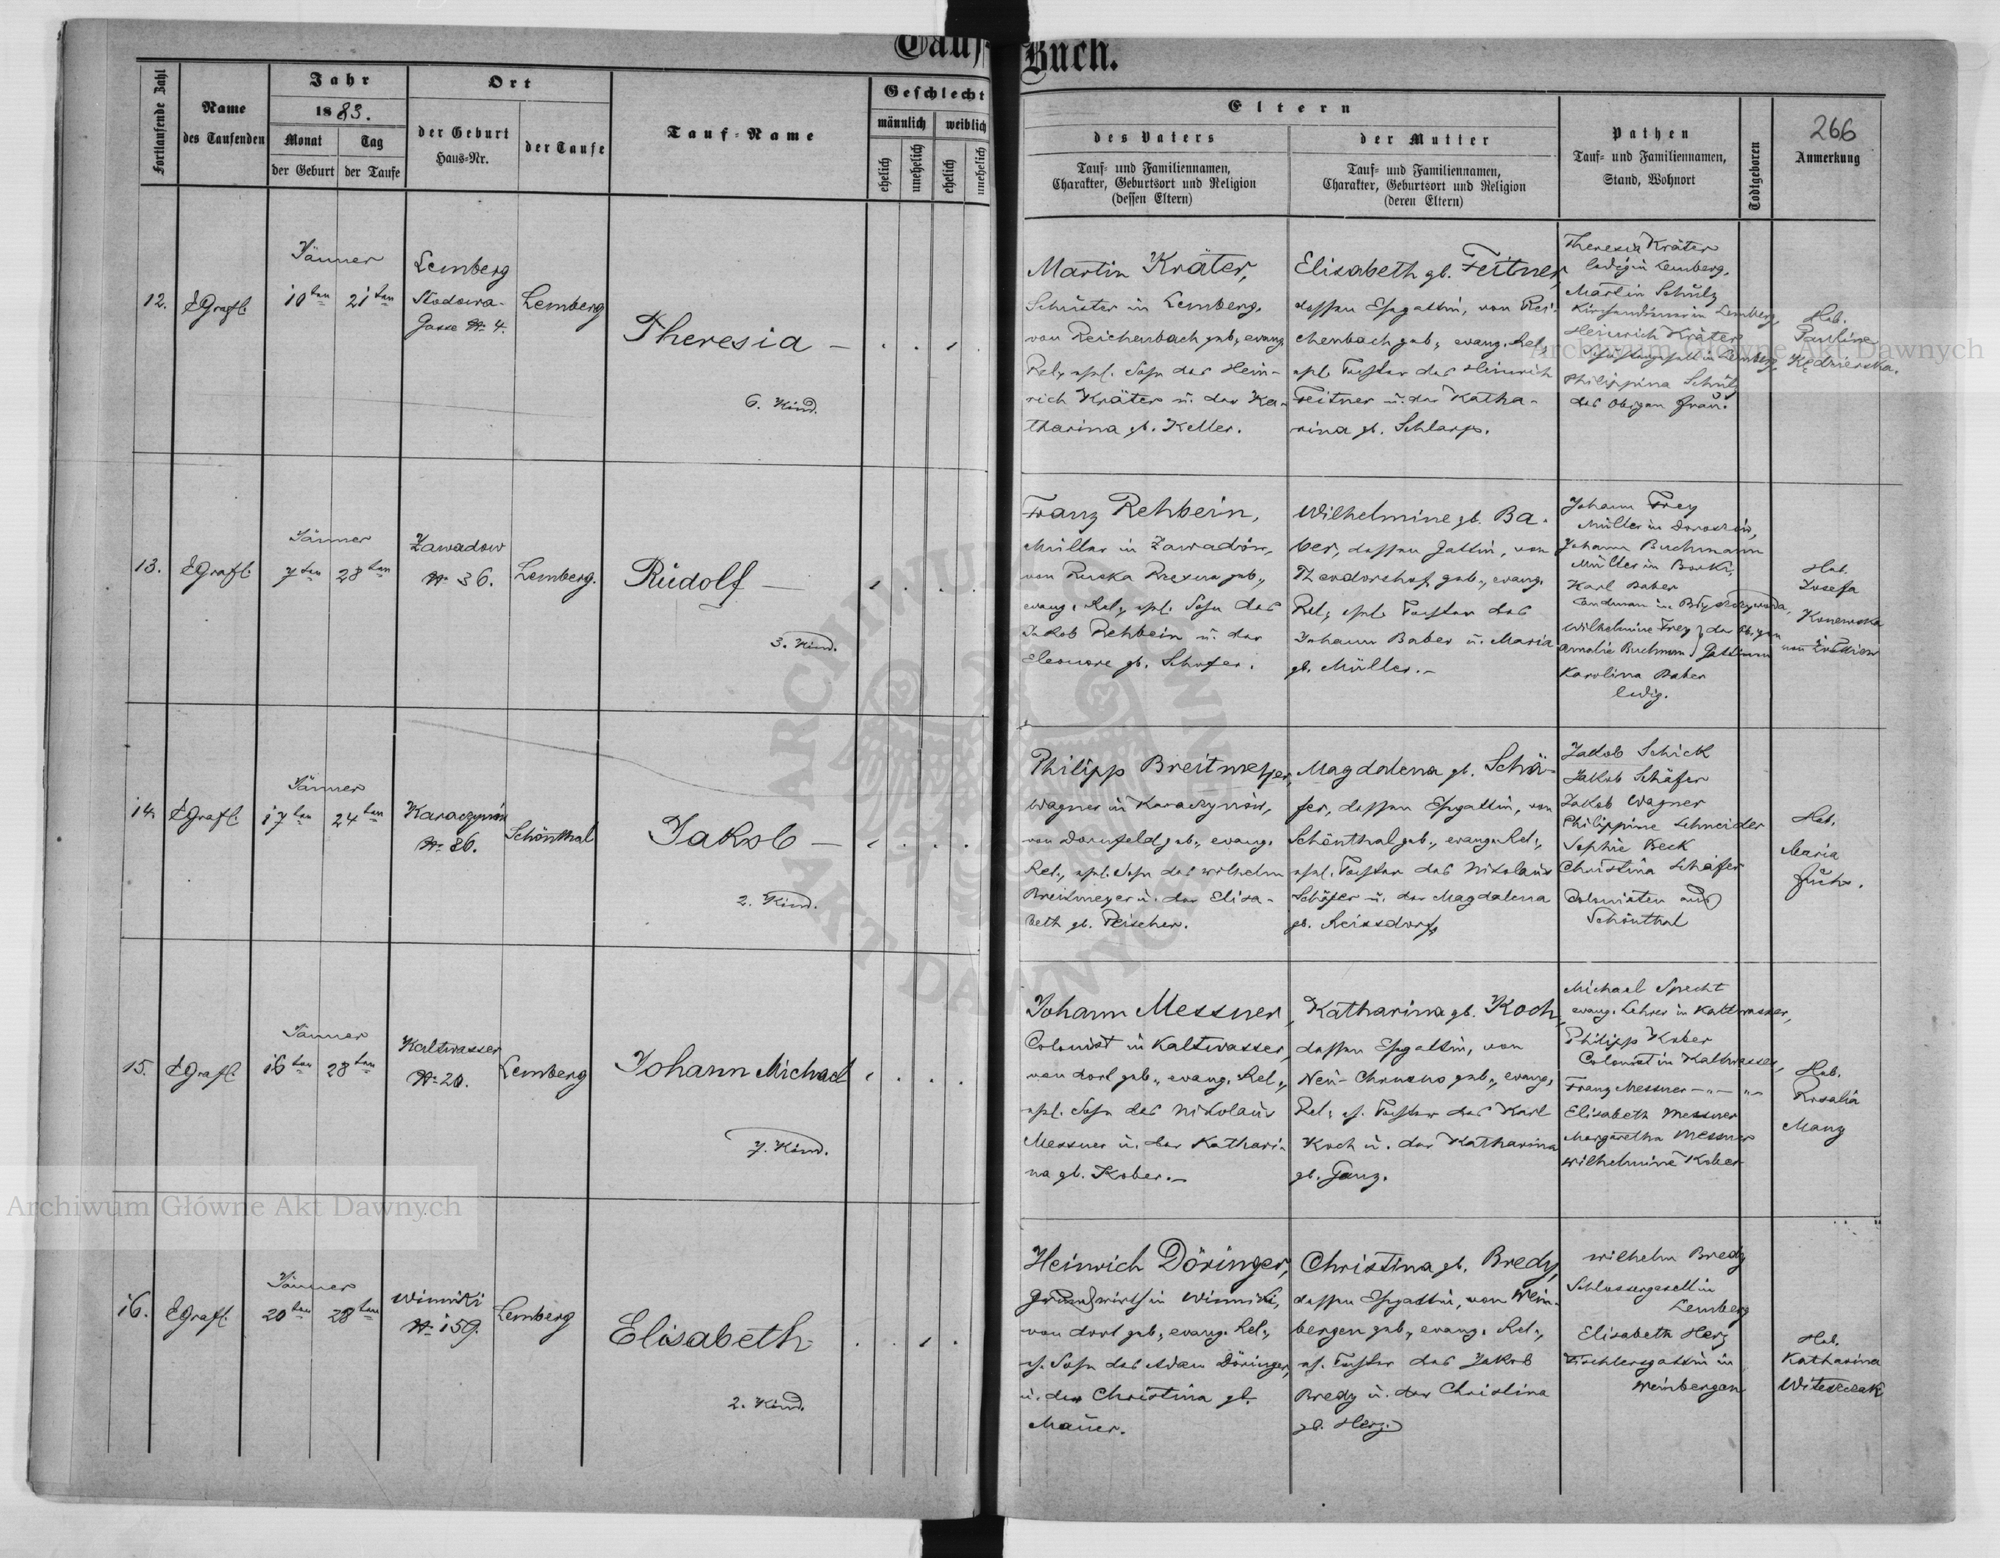 Tauf-Buch.
Fortlaufende Zahl
Name
des Taufenden
Jahr
1883.
Monat
der Geburt
Tag
der Taufe
Ort
der Geburt
Haus-Nr.
der Taufe
Tauf-Name
Geschlecht
männlich
weiblich
ehelich
unehelich
ehelich
unehelich
Eltern
des Vaters
Tauf- und Familiennamen,
Charakter, Geburtsort und Religion
(dessen Eltern)
der Mutter
Tauf- und Familiennamen,
Charakter, Geburtsort und Religion
(deren Eltern)
Pathen
Tauf- und Familiennamen,
Stand, Wohnort
Todtgeboren
266
Anmerkung
12.
Jänner
10ten
21ten
Lemberg
Gasse Nr. 4.
Lemberg
Theresia —
6. Kind.
Martin Kräter,
Schuster in Lemberg,
von Reichenbach geb., evang.
Rel., ehel. Sohn des Hein-
rich Kräter u. der Ka-
tharina gb. Keller.
Elisabeth gb. Feitner,
dessen Ehegattin, von Rei-
chenbach geb., evang. Rel.,
ehel. Tochter des Heinrich
Feitner u. der Katha-
rina gb. Schlarp.
Theresia Kräter
ledig in Lemberg,
Martin Schulz
Kirchendiener in Lemberg,
Heinrich Kräter
in Lemberg,
Philippina Schulz
des Obigen Frau.
Heb.
Pauline
Kędzierska.
13.
Jänner
7ten
28ten
Zawadow
Nr. 36.
Lemberg.
Rudolf —
3. Kind.
Franz Rehbein,
Müller in Zawadów,
von geb.,
evang. Rel., ehel. Sohn des
Jakob Rehbein u. der
Eleonore gb. Schofer.
Wilhelmine gb. Ba-
ber, dessen Gattin, von
Theodorshof geb., evang.
Rel., ehel. Tochter des
Johann Baber u. Maria
gb. Müller. –
Johann Frey
Müller in
Johann Buchmann
Müller in Borki,
Karl Baber
Wilhelmine Frey } der Obigen
Amalie Buchman } Gattinnen
Karolina Baber
ledig.
Heb.
Josefa
Konewska
14.
Jänner
17ten
24ten
Karaczynów
Nr. 86.
Schönthal
Jakob —
2. Kind.
Philipp Breitmeyer,
Wagner in Karaczynów,
von Dornfeld geb., evang.
Rel., ehel. Sohn des Wilhelm
Breitmeyer u. der Elisa-
beth gb. Reischer.
Magdalena gb. Schä-
fer, dessen Ehegattin, von
Schönthal geb., evang. Rel.,
ehel. Tochter des Nikolaus
Schäfer u. der Magdalena
gb. Reissdorf,
Jakob Schick
Jakob Schäfer
Jakob Wagner
Philippine Schneider
Sophie Beck
Christina Schäfer
Colonisten aus
Schönthal
Heb.
Maria
Fuchs.
15.
Jänner
16ten
28ten
Kaltwasser
Nr. 20.
Lemberg
Johann Michael
7. Kind.
Johann Messner,
Colonist in Kaltwasser,
von dort geb., evang. Rel.,
ehel. Sohn des Nikolaus
Messner u. der Kathari-
na gb. Kober. –
Katharina gb. Koch,
dessen Ehegattin, von
Neu-Chrusno geb., evang.
Rel., eh. Tochter des Karl
Koch u. der Katharina
gb. Ganz.
Michael Specht
evang. Lehrer in Kaltwasser,
Philipp Kober
Colonist in Kaltwasser,
Franz Messner – „ – „ –
Elisabeth Messner
Margaretha Messner
Wilhelmine Kober
Heb.
Rosalia
Manz
16.
Jänner
20ten
28ten
Winniki
Nr. 159.
Lemberg
Elisabeth
2. Kind.
Heinrich Döringer,
Grundwirth in Winniki,
von dort geb., evang. Rel.,
eh. Sohn des Adam Döringer,
u. der Christina gb.
Mauer.
Christina gb. Bredy,
dessen Ehegattin, von Wein-
bergen geb., evang. Rel.,
eh. Tochter des Jakob
Bredy u. der Christina
gb. Herz.
Wilhelm Bredy
Schlossergesell in
Lemberg
Elisabeth Herz
Tischlersgattin in
Weinbergen
Heb.
Katharina
Archiwum Główne Akt Dawnych
Archiwum Główne Akt Dawnych
ARCHIWUM GŁÓWNE
AKT DAWNYCH